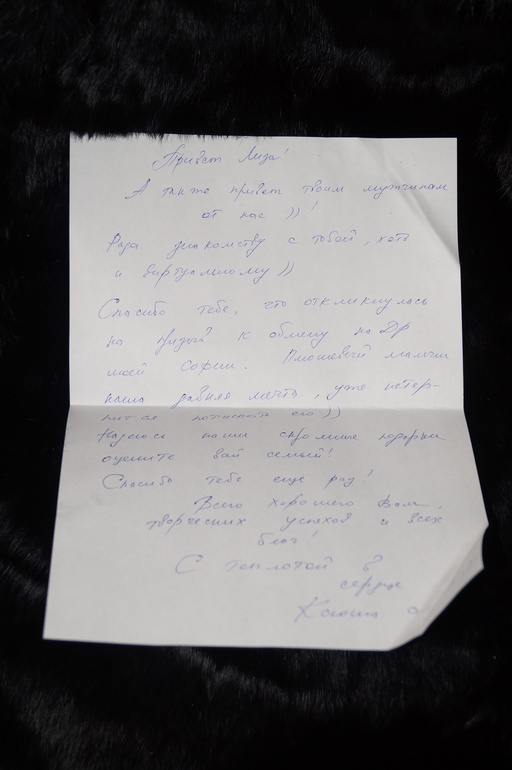 Привет Лиза!
А также привет твоим мужчинам
от нас ))!
Рада знакомству с тобой, хоть
и виртуальному ))
Спасибо тебе, что откликнулась
на призыв к обмену на ДР
моей Софии. Плюшевый мальчик
наша давняя мечта, уже нетер-
питься потискать его ))
Надеюсь наши скромные подарки
оцените всей семьёй!
Спасибо тебе еще раз!
Всего хорошего Вам,
творческих успехов и всех
благ!
С теплотой в
сердце
Ксюша